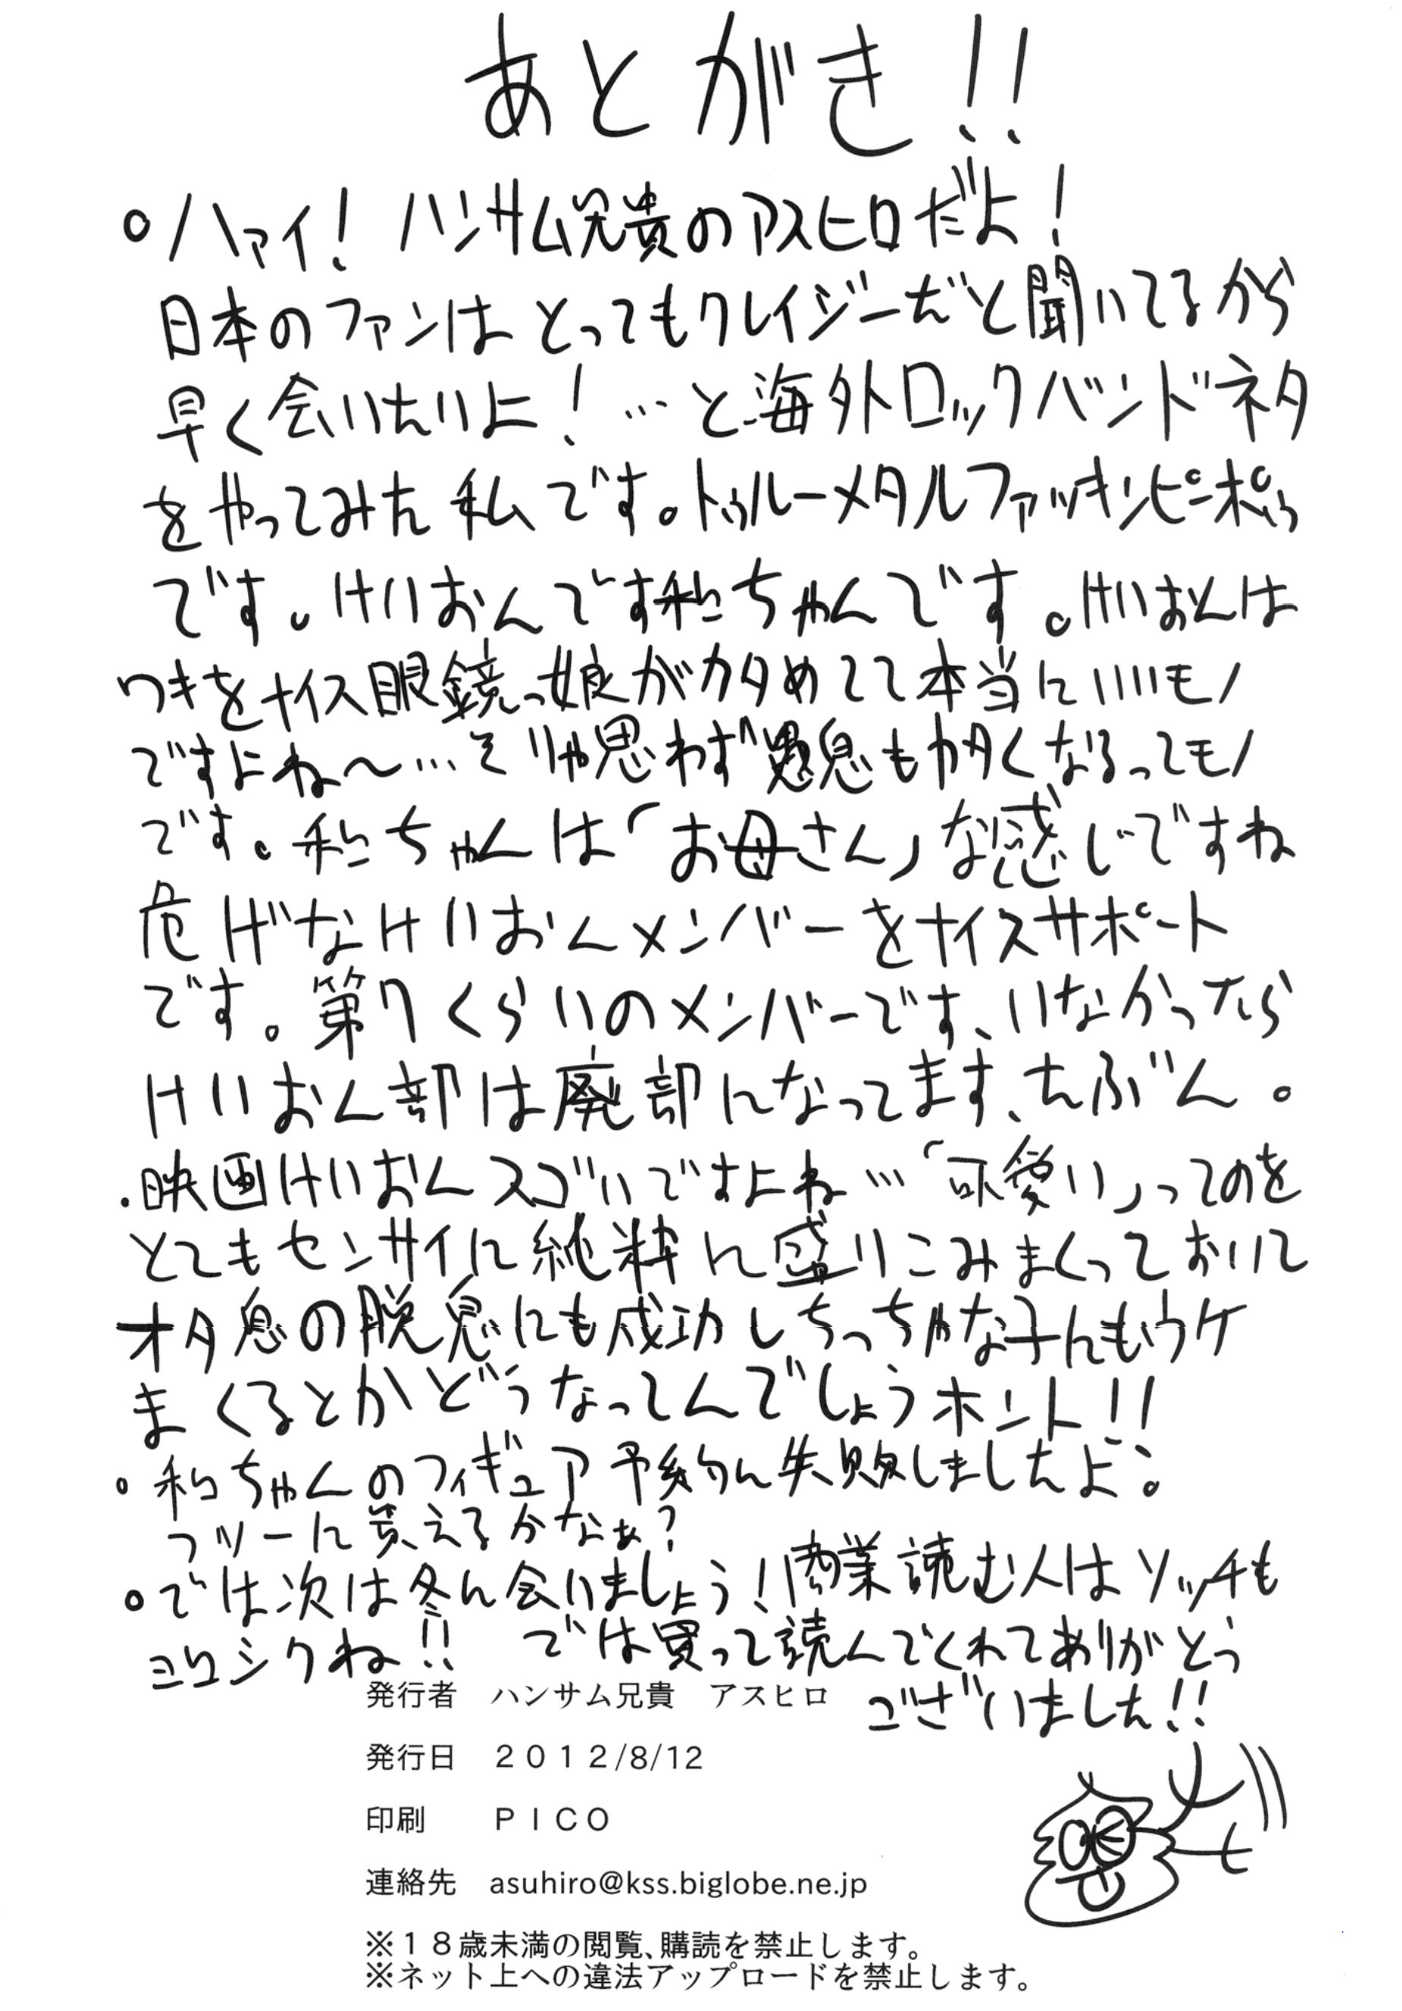 あとがき!!
○ハァイ! ハンサム兄貴のアスヒロだよ!
日本のファンはとってもクレイジーだと聞いてるから
早く会いたいよ!…と海外ロックバンドネタ
をやってみた私です。トゥルーメタルファッキンピンポゥ
です。けいおんです和ちゃんです。けいおんは
ワキをナイス眼鏡っ娘がカタめてて本当にいいモノ
ですよね〜…そりゃ思わず愚息もカタくなるってモノ
です。和ちゃんは「お母さん」な感じですね
危げなけいおんメンバーをナイスサポート
です。第7くらいのメンバーです、いなかったら
けいおん部は廃部になってます、たぶん。
・映画けいおんスゴいですよね…「可愛い」ってのを
とてもセンサイに純粋に盛りこみまくっておいて
オタ息の脱息にも成功しちっちゃな子にもウケ
まくるとかどうなってんでしょうホント!!
○和ちゃんのフィギュア予約に失敗しましたよ。
フツーに買えるかなぁ?
○では次は冬に会いましょう!商業読む人はソッチも
ヨロシクね!! では買って読んでくれてありがとう
ございました!!
発行者 ハンサム兄貴 アスヒロ
発行日 2012/8/12
印刷 PICO
連絡先 asuhiro@kss.biglobe.ne.jp
※18歳未満の閲覧、購読を禁止します。
※ネット上への違法アップロードを禁止します。